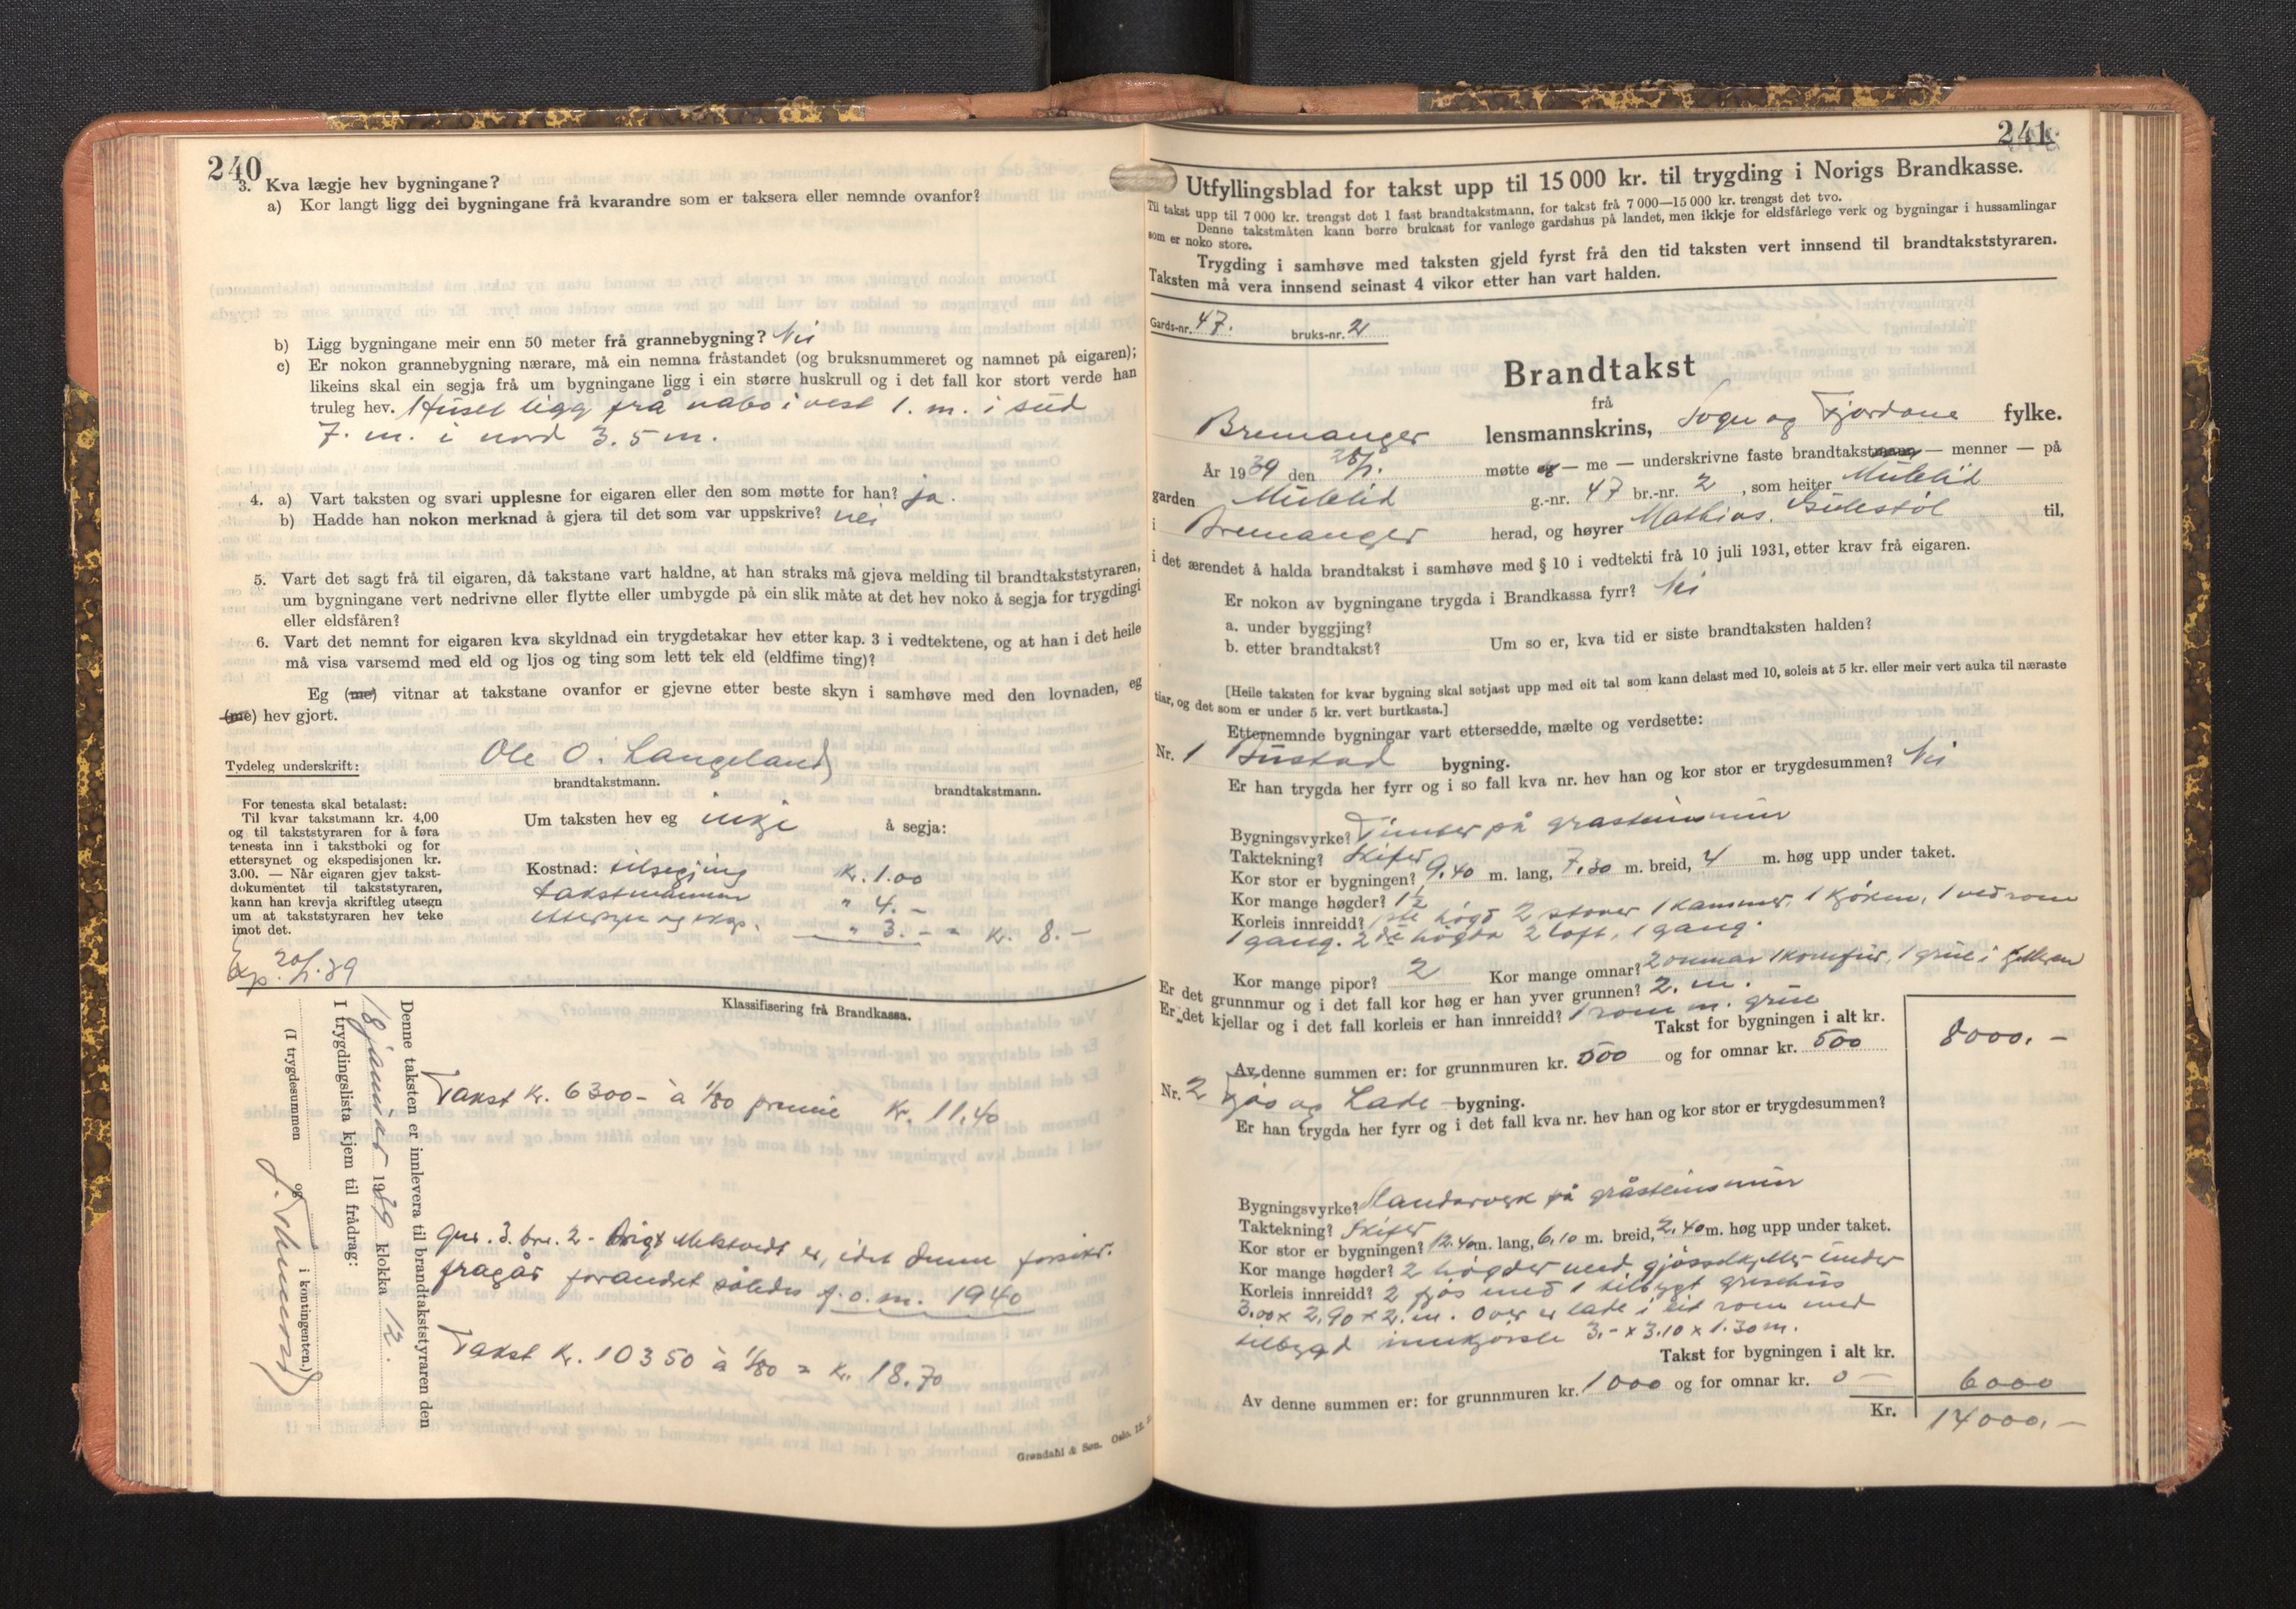 240
3. Kva lægje hev bygningane?
a) Kor langt ligg dei bygningane frå kvarandre som er taksera eller nemnde ovanfor?
b) Ligg bygningane meir enn 50 meter frå grannebygning? Nei
c) Er nokon grannebygning nærare, må ein nemna fråstandet (og bruksnummeret og namnet på eigaren);
likeins skal ein segja frå um bygningane ligg i ein større huskrull og i det fall kor stort verde han
truleg hev. Huset ligg frå nabo i vest 1. m. i süd
7. m. i nord 3.5 m.
4. a) Vart taksten og svari upplesne for eigaren eller den som møtte for han? ja.
b) Hadde han nokon merknad å gjera til det som var uppskrive? nei
5. Vart det sagt frå til eigaren, då takstane vart haldne, at han straks må gjeva melding til brandtakststyraren,
um bygningane vert nedrivne eller flytte eller umbygde på ein slik måte at det hev noko å segja for trygdingi
eller eldsfåren?
6. Vart det nemnt for eigaren kva skyldnad ein trygdetakar hev etter kap. 3 i vedtektene, og at han i det heile
må visa varsemd med eld og ljos og ting som lett tek eld (eldfime ting)?
Eg (me) vitnar at takstane ovanfor er gjevne etter beste skyn i samhøve med den lovnaden, eg
(me) hev gjort.
Tydeleg underskrift: Ole O. Langeland
brandtakstmann. brandtakstmann.
For tenesta skal betalast:
Til kvar takstmann kr. 4,00
og til takststyraren for å føra
tenesta inn i takstboki og for
ettersynet og ekspedisjonen kr.
3.00. — Når eigaren gjev takst-
dokumentet til takststyraren,
kann han krevja skriftleg utsegn
um at takststyraren hev teke
imot det.
Um taksten hev eg inkje å segja:
Kostnad: tilsegjing kr. 1.00
takstmannen " 4. -
ettersyn og eksp. " 3. - = kr. 8. -
Exp. 20/1.39
Klassifisering frå Brandkassa.
Denne taksten er innlevera til brandtakststyraren den
18 januar 1939 klokka 12.
I trygdingslista kjem til frådrag:
(I trygdesummen og i kontingenten.)
Takst Kr. 6300- à 1/80 premie Kr. 11.40
Gnr. 3. bnr. 2 - er, idet denne forsikr.
fragår forandret således f. o. m. 1940
Takst Kr. 10350 à 1/80 = Kr. 18.70
Grøndahl & Søn. Oslo.
241
Utfyllingsblad for takst upp til 15 000 kr. til trygding i Norigs Brandkasse.
Til takst upp til 7 000 kr. trengst det 1 fast brandtakstmann, for takst frå 7 000—15 000 kr. trengst det tvo.
Denne takstmåten kann berre brukast for vanlege gardshus på landet, men ikkje for eldsfårlege verk og bygningar i hussamlingar
som er noko store.
Trygding i samhøve med taksten gjeld fyrst frå den tid taksten vert innsend til brandtakststyraren.
Taksten må vera innsend seinast 4 vikor etter han vart halden.
Gards-nr. 47. bruks-nr. 2
Brandtakst
frå
Bremanger lensmannskrins, Sogn og Fjordane fylke.
År 1939 den møtte eg — me — underskrivne faste brandtakstmann — menner — på
garden Mulelid g.-nr. 47 br.-nr. 2, som heiter Mulelid
i Bremanger herad, og høyrer Mathias Gulestøl til,
i det ærendet å halda brandtakst i samhøve med § 10 i vedtekti frå 10 juli 1931, etter krav frå eigaren.
Er nokon av bygningane trygda i Brandkassa fyrr? Nei
a. under byggjing?
b. etter brandtakst? Um so er, kva tid er siste brandtaksten halden?
[Heile taksten for kvar bygning skal setjast upp med eit tal som kann delast med 10, soleis at 5 kr. eller meir vert auka til næraste
tiar, og det som er under 5 kr. vert burtkasta.]
Etternemnde bygningar vart ettersedde, mælte og verdsette:
Nr. 1 Bustad bygning.
Er han trygda her fyrr og i so fall kva nr. hev han og kor stor er trygdesummen? Nei
Bygningsvyrke? Timber på grasteinsmur
Taktekning? Skifer
Kor stor er bygningen? 9.40 m. lang, 7.30 m. breid, 4 m. høg upp under taket.
Kor mange høgder? 1½
Korleis innreidd? 1ste høgd 2 stover 1 kammer, 1 kjøken, 1 vedrom
1 gang. 2de høgda 2 loft, 1 gang.
Kor mange pipor? 2 Kor mange omnar? 2 omnar 1 komfur, 1 grue i kjelleren
Er det grunnmur og i det fall kor høg er han yver grunnen? 2. m.
Er det kjellar og i det fall korleis er han innreidd? 1 rom m. grue
Takst for bygningen i alt kr. 8000. -
Av denne summen er: for grunnmuren kr. 500 og for omnar kr. 500
Nr. 2 Fjøs og Lade bygning.
Er han trygda her fyrr og i det fall kva nr. hev han og kor stor er trygdesummen?
Bygningsvyrke? Standarverk på gråsteinsmur
Taktekning? Skifer
Kor stor er bygningen? 12.40 m. lang, 6.10 m. breid, 2.40 m. høg upp under taket.
Kor mange høgder? 2 høgder med gjødselkjeller under
Korleis innreidd? 2 fjøs med 1 tilbygt grisehus
3.00 x 2.90 x 2. m. Over er lade i eit rom med
tilbygd innkjørsle 3.- x 3.10 x 1.30 m.
Takst for bygningen i alt kr. 6000
Av denne summen er: for grunnmuren kr. 1000 og for omnar kr. 0 -
Kr. 14000. -